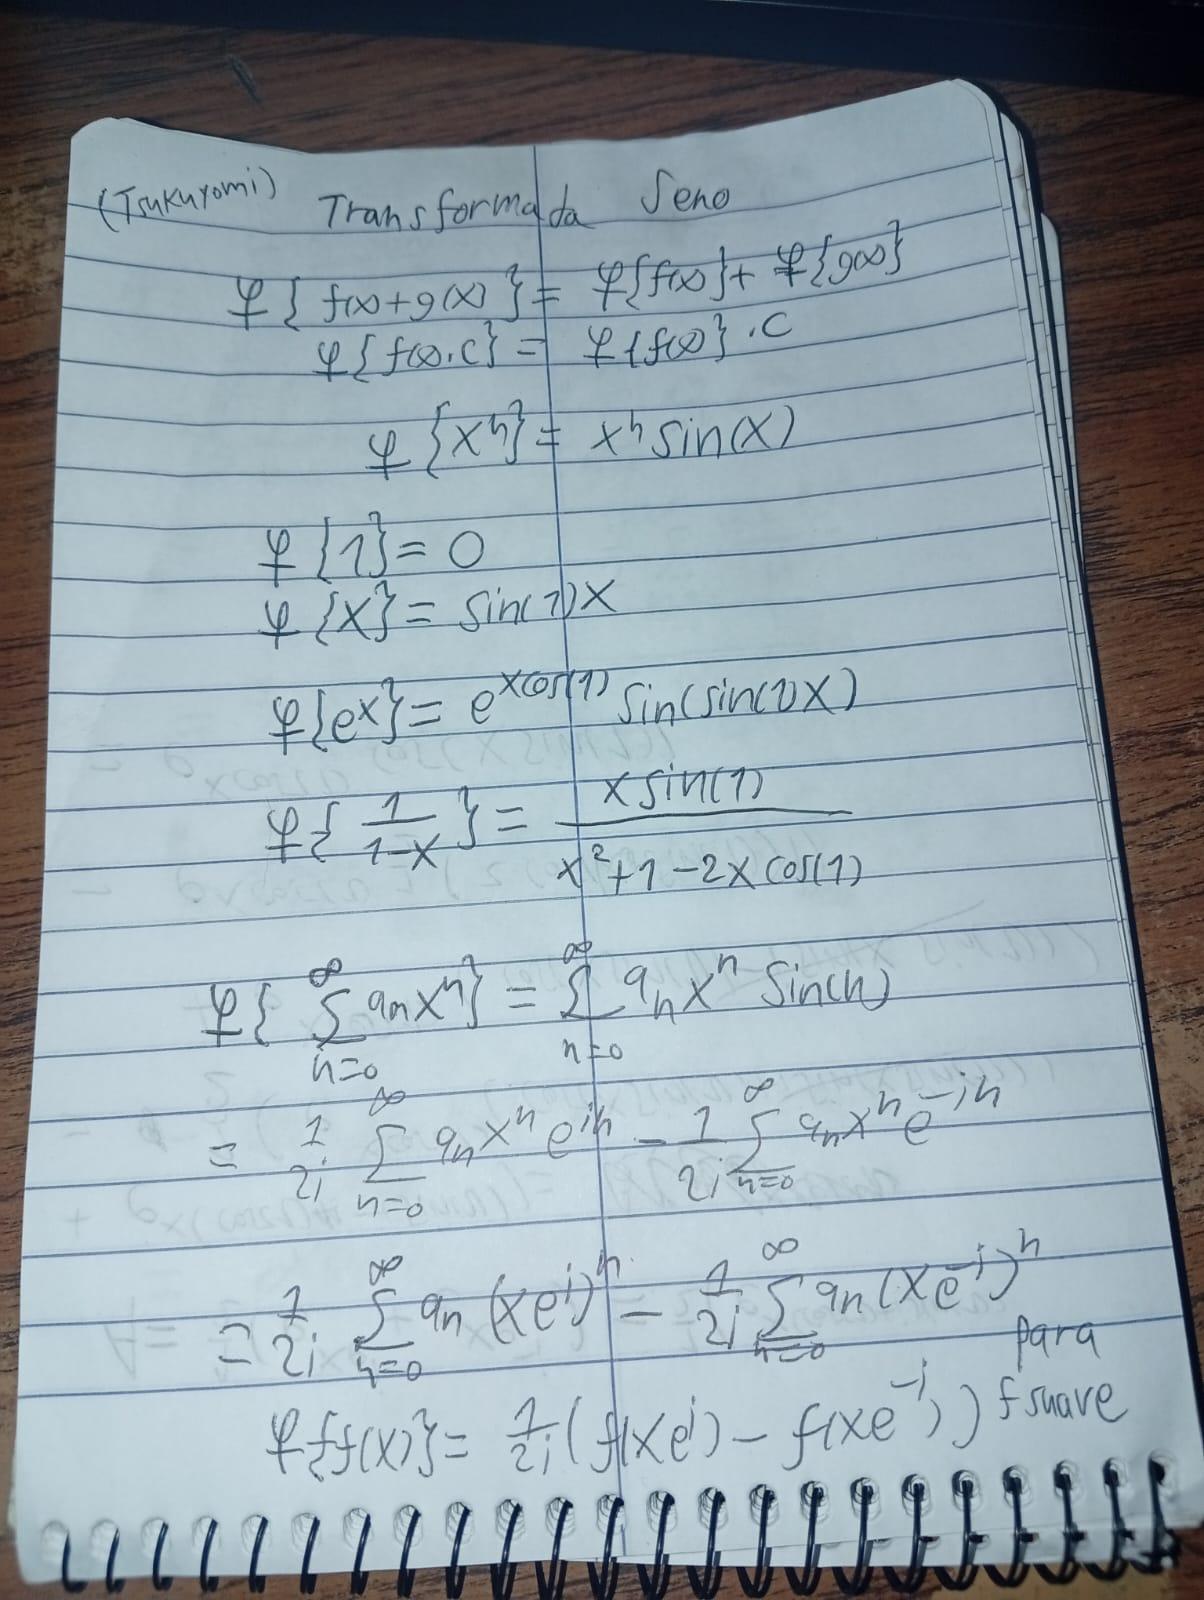 (Tsukuyomi) Transformada Seno
Ұ{f(x)+g(x)} = Ұ{f(x)} + Ұ{g(x)}
Ұ{f(x).c} = Ұ{f(x)}.c
Ұ{xⁿ} = xⁿ sin(x)
Ұ{1} = 0
Ұ{x} = sin(1)x
Ұ{eˣ} = e^{xcos(1)} sin(sin(1)x)
Ұ{1/(1-x)} = x sin(1) / (x²+1-2x cos(1))
Ұ{∑_{n=0}^{∞} aₙxⁿ} = ∑_{n=0}^{∞} aₙxⁿ sin(n)
= 1/2i ∑_{n=0}^{∞} aₙxⁿ e^{in} - 1/2i ∑_{n=0}^{∞} aₙxⁿ e^{-in}
= 1/2i ∑_{n=0}^{∞} aₙ(xe^{i})ⁿ - 1/2i ∑_{n=0}^{∞} aₙ(xe^{-i})ⁿ
Ұ{f(x)} = 1/2i (f(xe^{i}) - f(xe^{-i})) para f suave